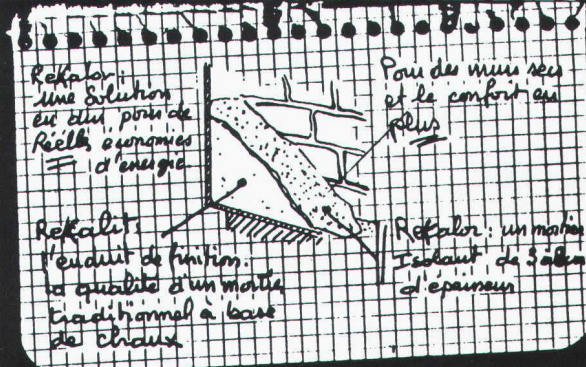 Rekalor:
une Solution
en dur pour de
Réelles économies
d'énergie
Pour des murs secs
et le confort en
plus
Rekalit:
l'enduit de finition.
la qualité d'un mortier
traditionnel à base
de chaux
Rekalor: un mortier
Isolant de
d'épaisseur